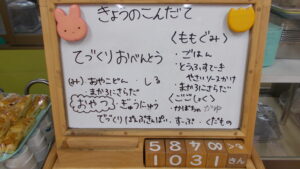 きょうのこんだて
てづくりおべんとう
(み) あやこどん・しる
・まかろにさらだ
おやつ ぎゅうにゅう
てづくりぱんぷきんぱい
〈ももぐみ〉
・ごはん
・とうふすてーき
やさいソースかけ
・まかろにさらだ
〈ごごしょく〉
・かぼちゃ
・すーぷ ・くだもの
5 8 4 8
1 0 3 1 きん